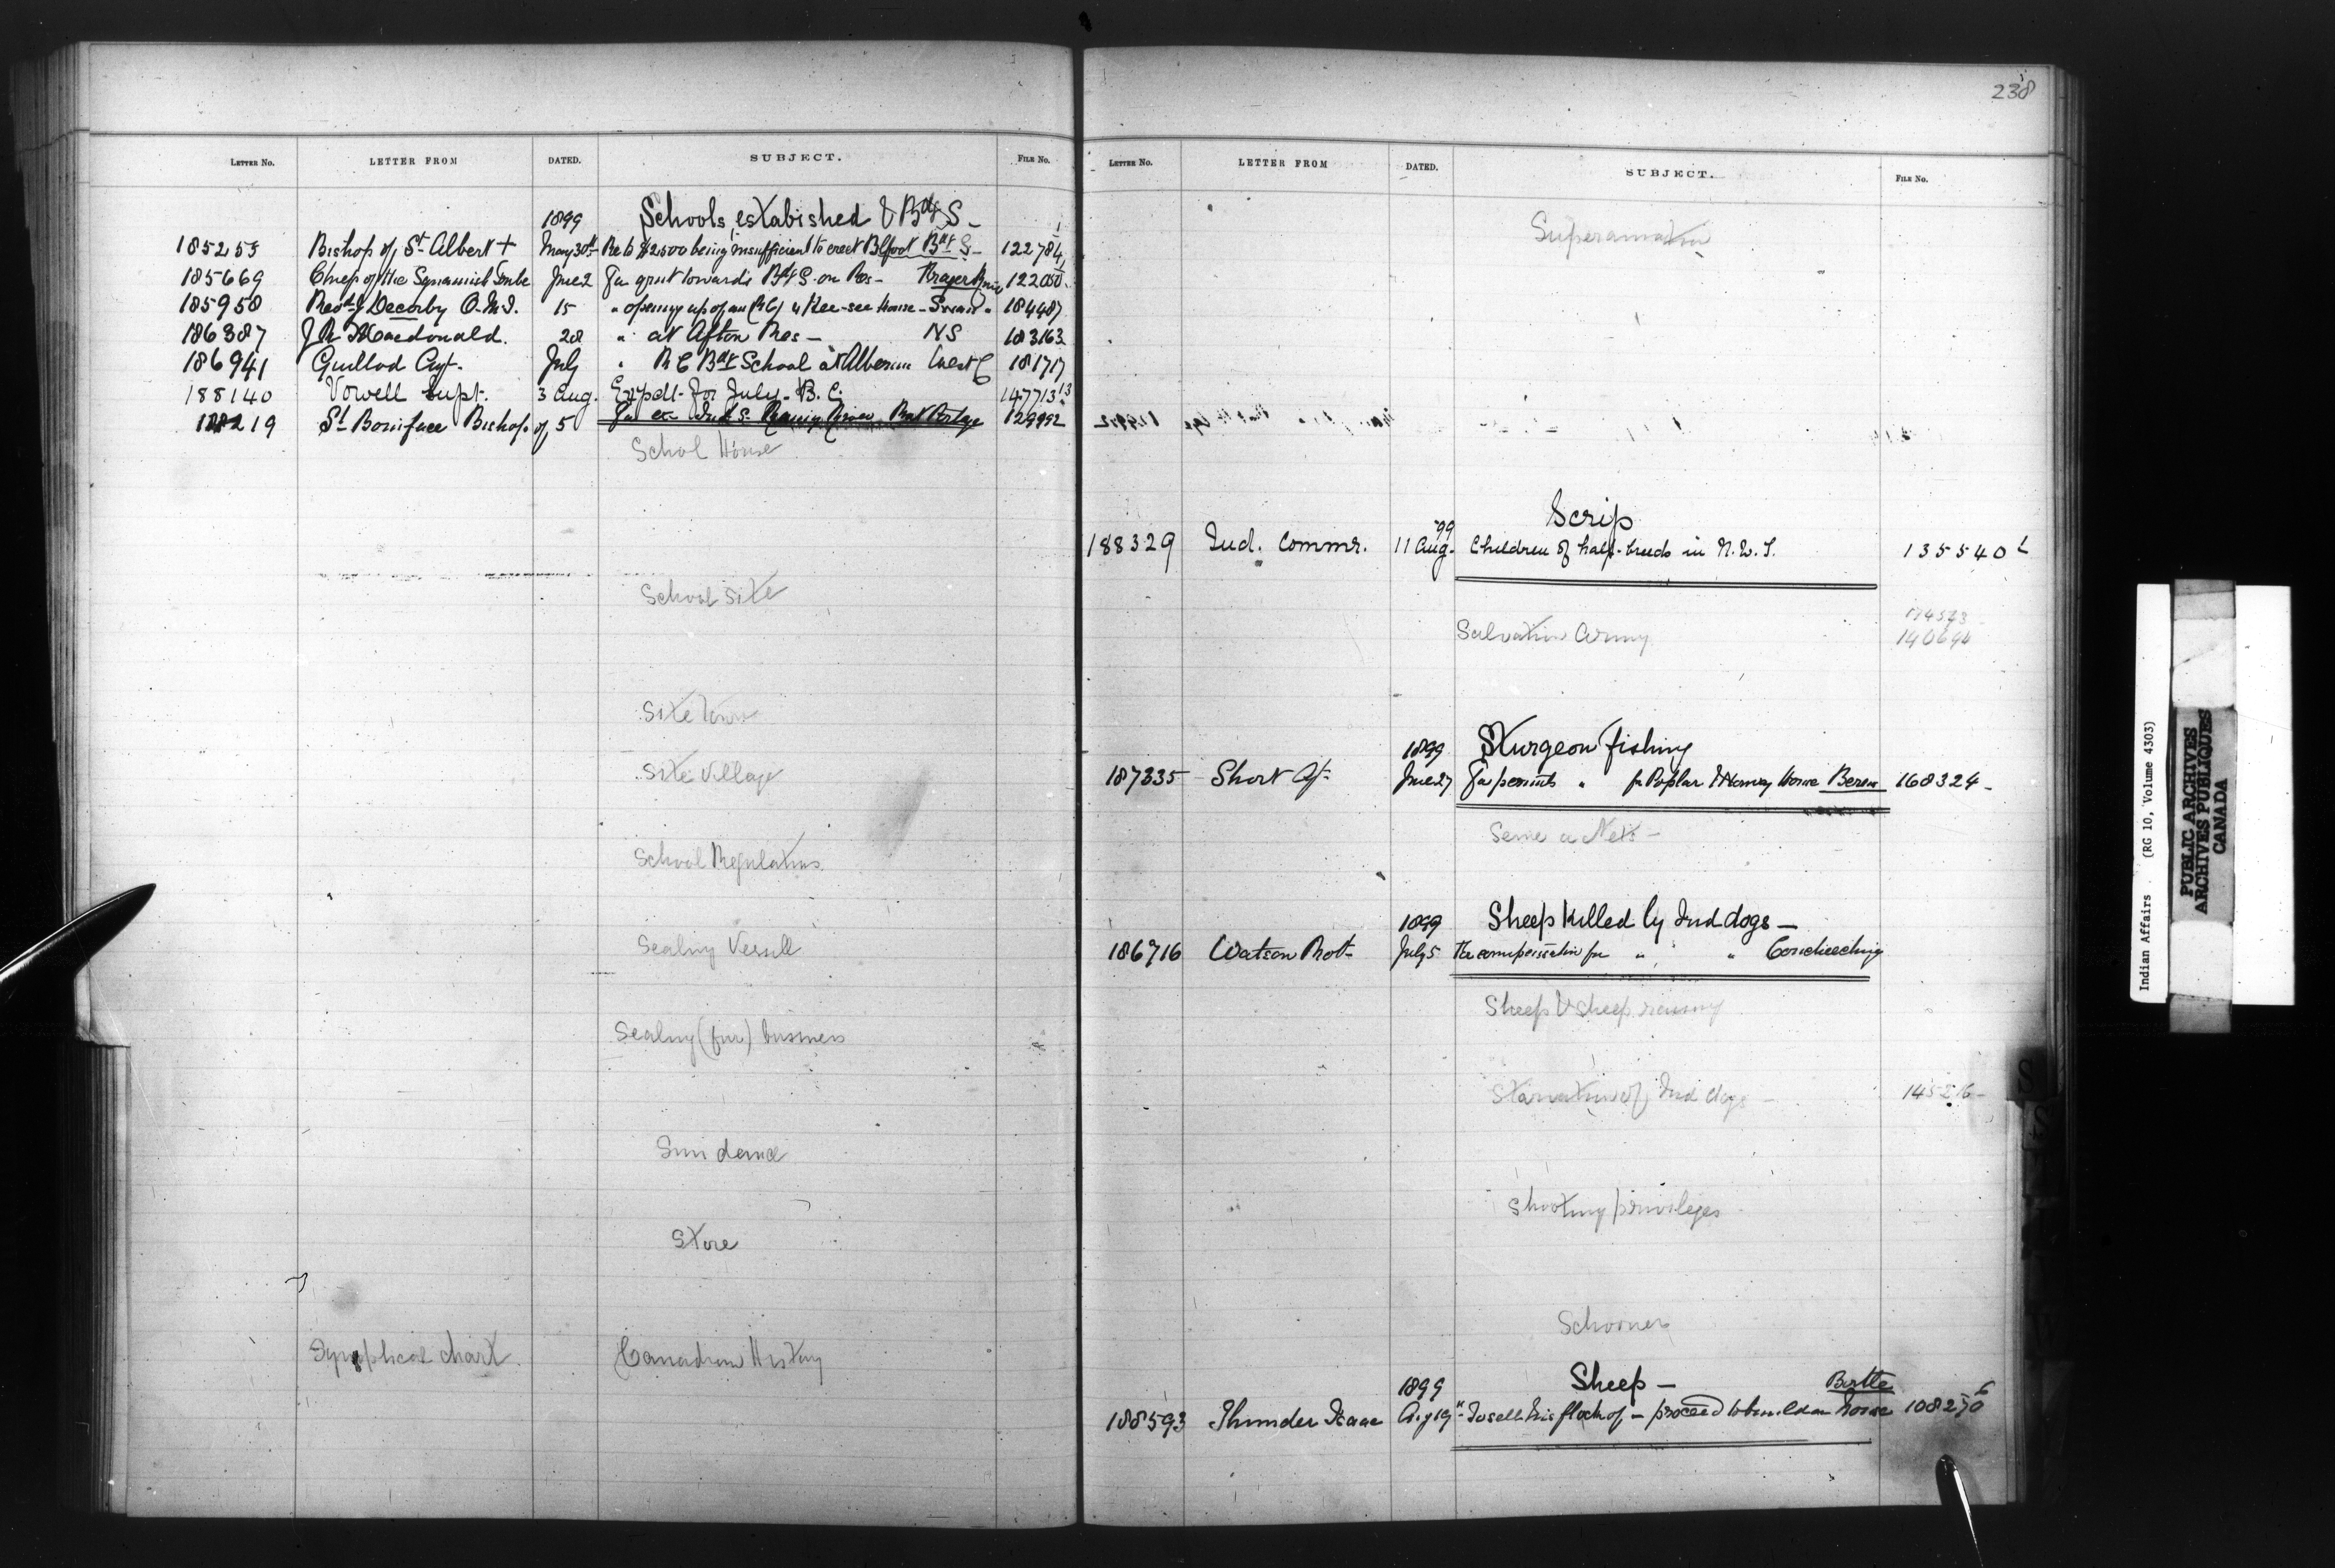 LETTER NO. LETTER FROM DATED. SUBJECT. FILE NO.
1899 Schools estabished & Bdg S -
185253 Bishop of St Albert + May 30th Re to $2500 being insufficient to erect Blfoot Bdg S - 122784
185669 Chief of the Squamish Tribe June 2 For grant towards Bdg S. on Res - 122050
185958 Revd J Decorby O.M.I. 15 " opening up of an (RC) " Kee-see House - Swan " 184487
186387 J R Macdonald. 28 " at Afton Res - NS 183163
186941 Guillod Agt. July " R C Bdg School at Alberni West C 181717
188140 Vowell Supt. 3 Aug. Expdt. for July. B.C. 147713 13
188219 St Boniface Bishop of 5 For Ind S. Rainy River Rat Portage 129992
School House
School Site
Site Town
Site Village
School Regulations
Sealing Vessell
Sealing (fur) business
Sun dance
Store
Synoptical chart Canadian History
238
LETTER NO. LETTER FROM DATED. SUBJECT. FILE NO.
Superannation
Scrip
188329 Ind. Commr. '99 11 Aug. Children of half-breeds in N.W.T. 135540
174573
Salvation Army 140694
1899 Sturgeon fishing
187335 Short Agt June 27 For permits " for Poplar & House Berens 168324 -
Seine & Nets -
1899 Sheep killed by Ind dogs -
186716 Watson Robt - July 5 Re compensation for " " Couchiching
Sheep & Sheep raising
Starvation of Ind dogs - 145216 -
Shooting privileges
Schooner
1899 Sheep - Birtle
188593 Thunder Isaac Aug 19 To sell his flock of - proceed to build a house 108270 6
Indian Affairs (RG 10, Volume 4303)
PUBLIC ARCHIVES
ARCHIVES PUBLIQUES
CANADA